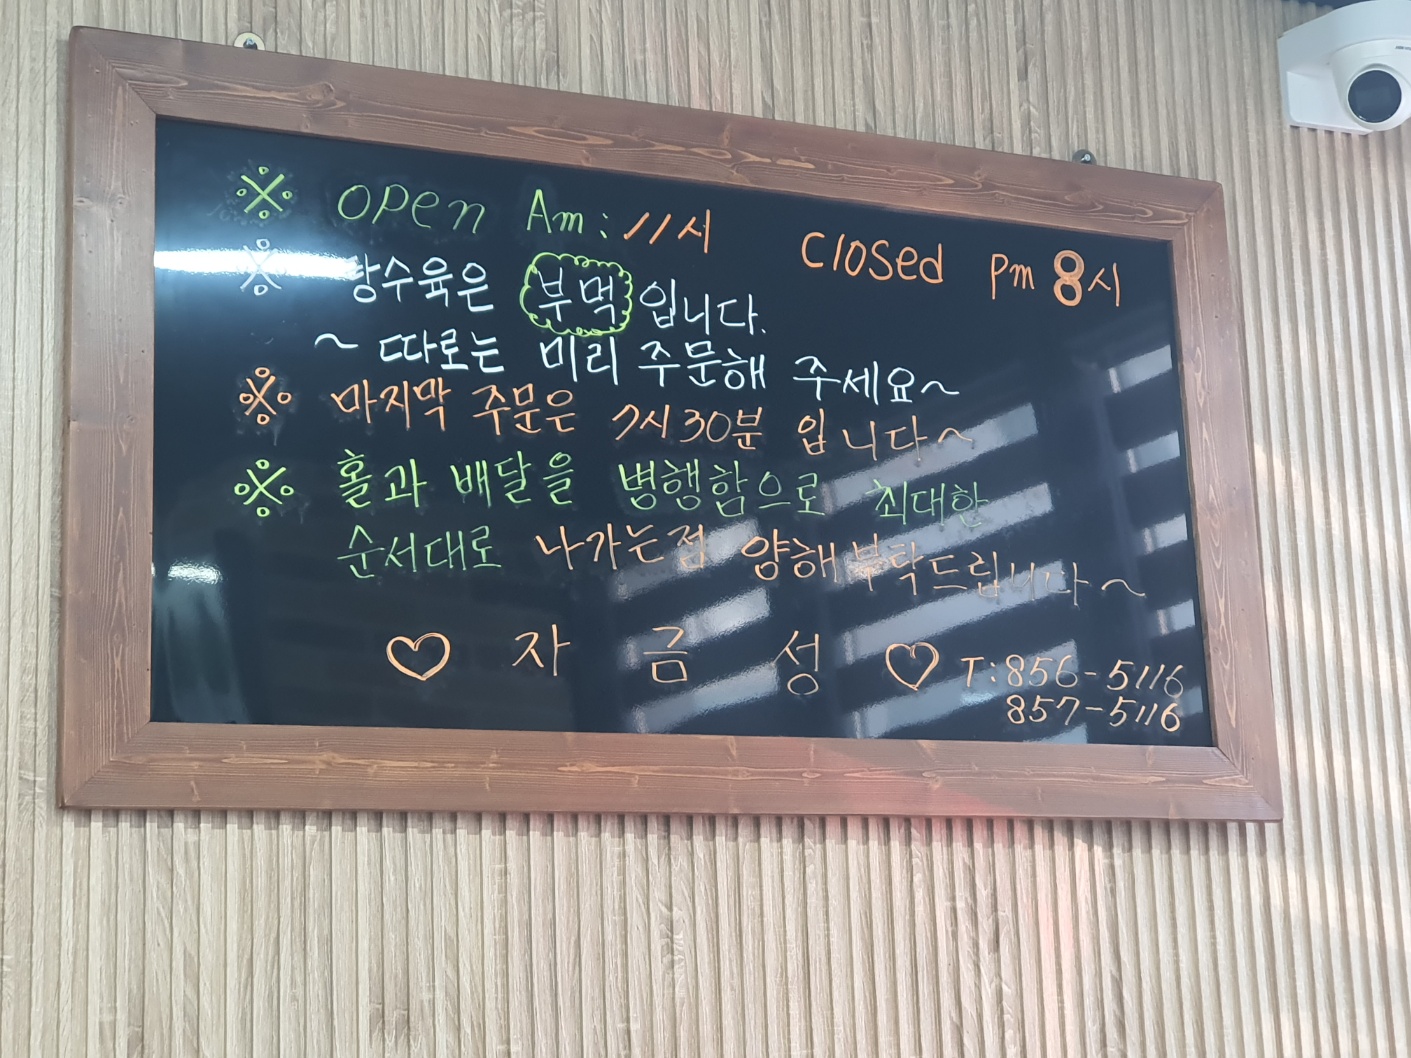 ※ open Am: 11시 closed pm 8시
※ 탕수육은 부먹입니다.
~ 따로는 미리 주문해 주세요~
※ 마지막 주문은 7시30분 입니다~
※ 홀과 배달을 병행함으로 최대한
순서대로 나가는점 양해부탁드립니다~
♡ 자 금 성 ♡ T:856-5116
857-5116